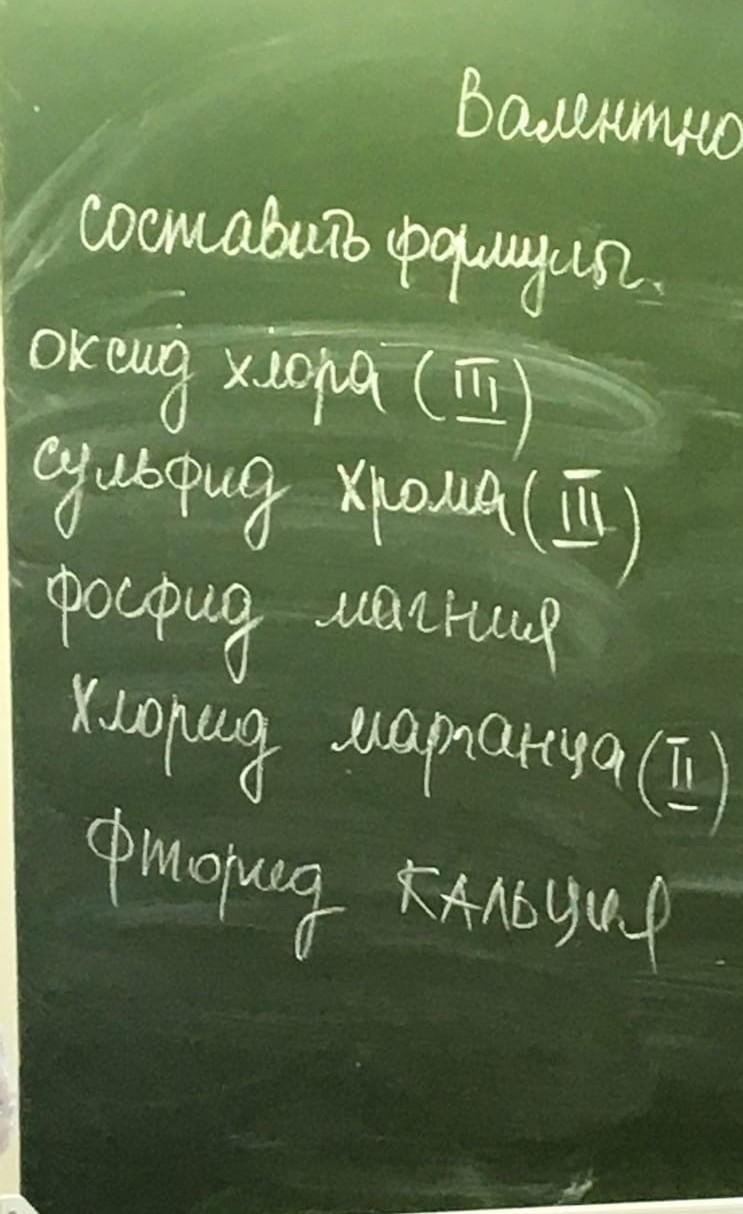 Валентно
составить формулы.
оксид хлора (III)
сульфид хрома (III)
фосфид магния
хлорид марганца (II)
Фторид КАЛЬЦия